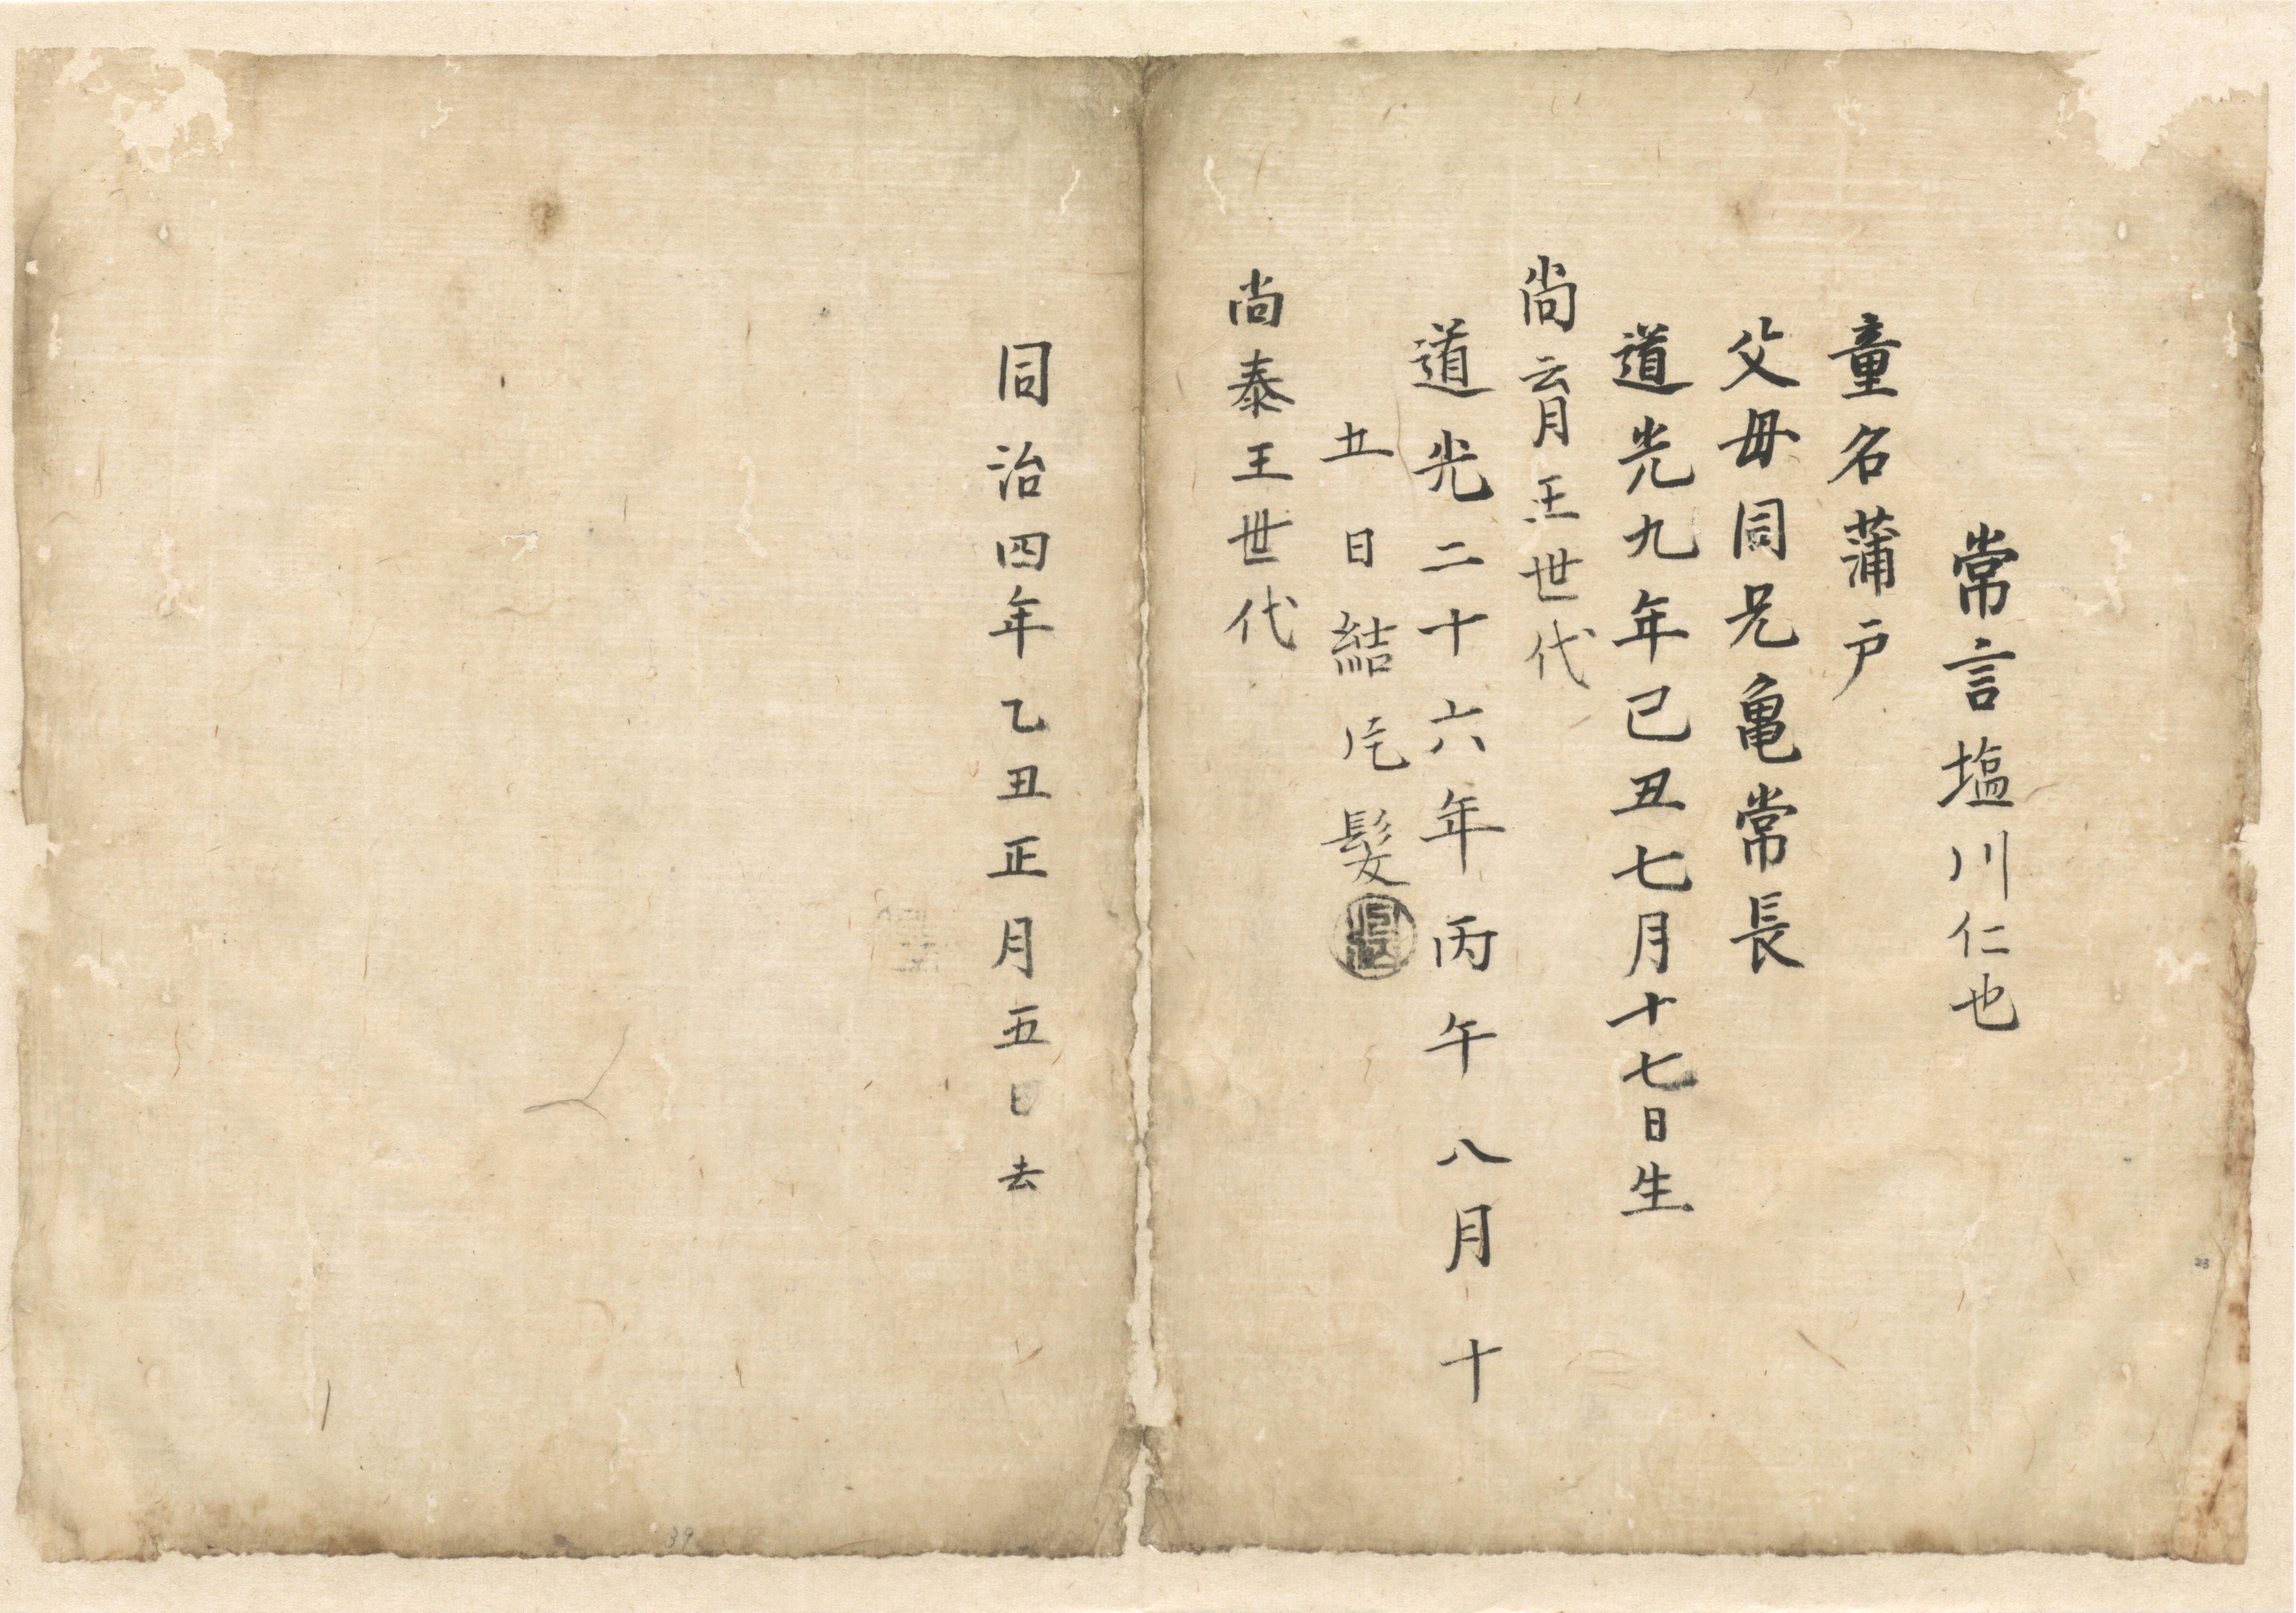 常言塩川仁也
童名蒲戸
父毋同兄亀常長
道光九年己丑七月十七日生
尚育王世代
道光二十六年丙午八月十
五日結片髪
尚泰王世代
同治四年乙丑正月五日去
39